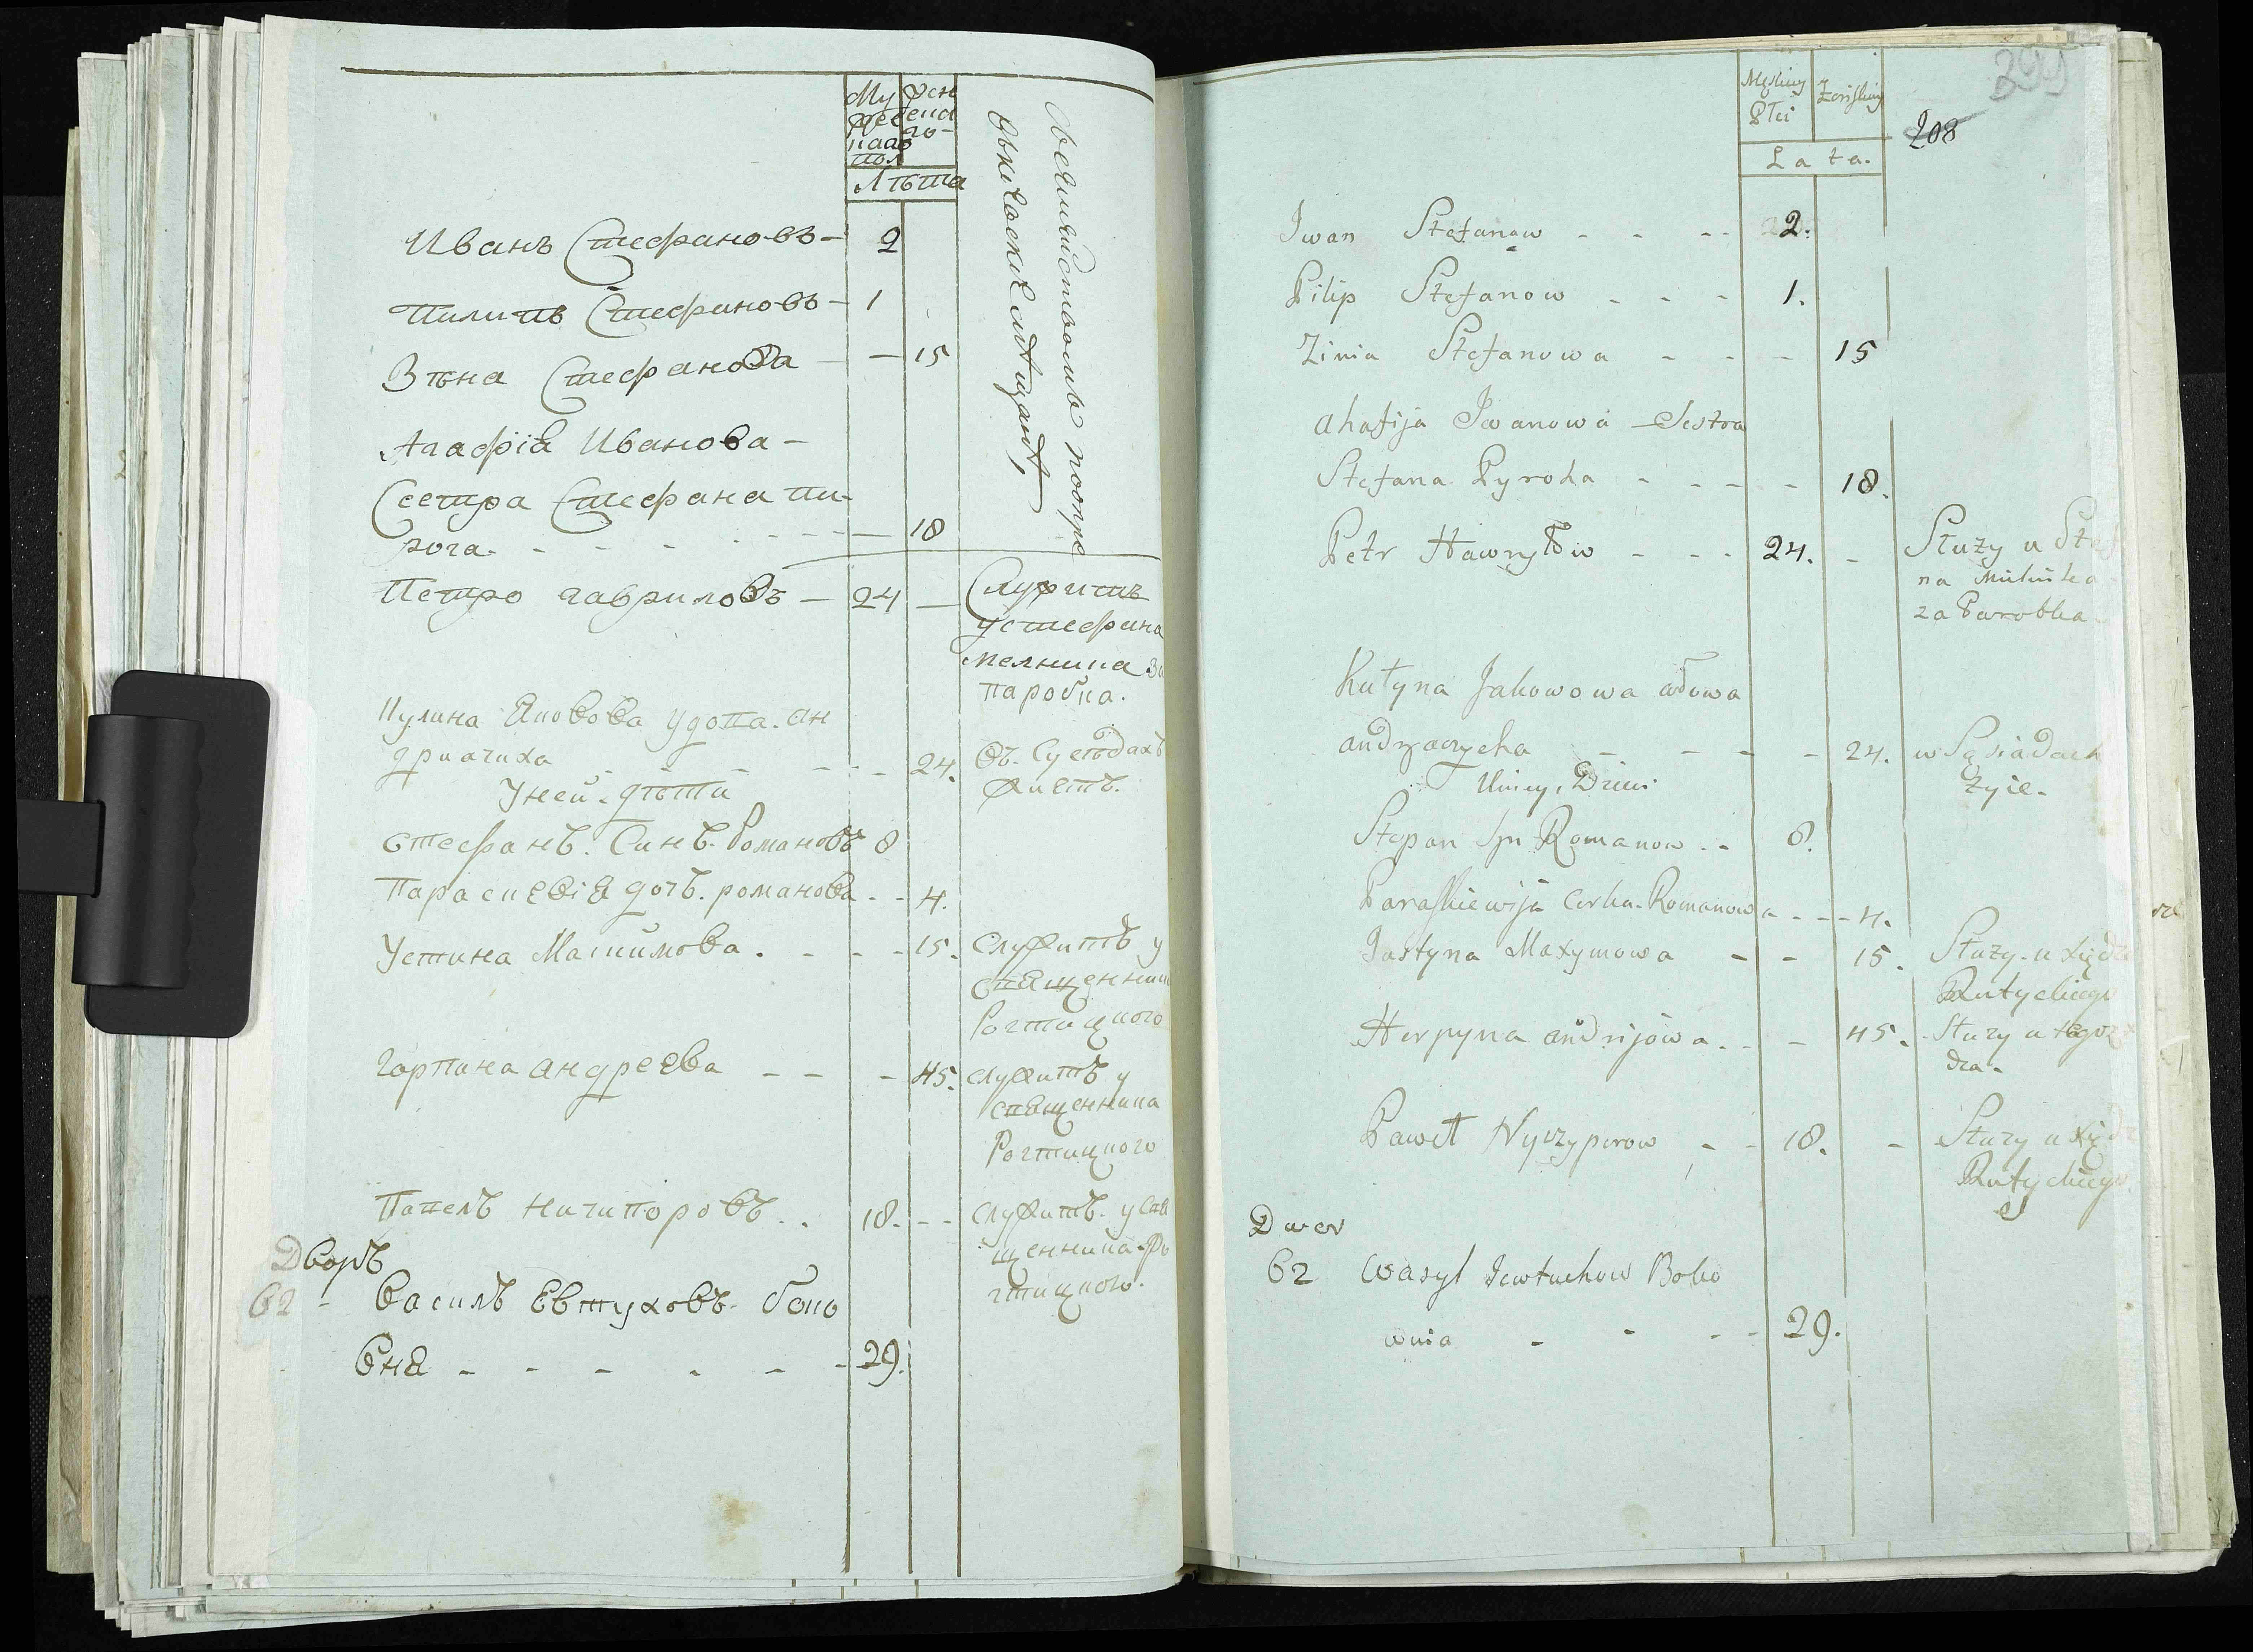 Му
жеска
пола
Женска
го
Лѣта
Иванъ Стефановъ - 2
Пилипъ Стефановъ - 1
Зѣна Стефанова - — 15
Агафія Иванова -
Сестра Стефана Пи-
рога - - - - — 18
Петро Гавриловъ — 24 —
Служитъ
у Стефана
мелника за
паробка.
Кулина Яковова удова. Ан
дриачиха - - - 24.
Въ. Сусѣдахъ
жиетъ.
У ней. дѣти
Стефанъ. Синъ. Романовъ 8
Параскевія дочъ. романова - - 4.
Устина Макимова . - - - 15.
служитъ у
священника
Рогтицкого
Гарпина андреева - - - 45.
служитъ у
священника
Рогтицкого
Павелъ Ничипоровъ . . 18. - -
служитъ. у свя
щенника. Ро
гтицкого.
Дворъ
62 - Василъ Евтуховъ. боко
вня - - - - - - 29.
299
208
Męskiey
Płci
Żeńskiey
Lata.
Iwan Stefanow - - - - 2.
Pilip Stefanow - - - 1.
Zinia Stefanowa - - - 15
Ahafija Iwanowa - Sestra
Stefana Pyroha - - - - - 18.
Petr Hawryłow - - - 24. -
Służy u Stef
na Mielnika
za Parobka -
Kułyna Jakowowa wdowa
andryaczycha - - - - - 24.
w Sąsiadach
żyie.
U niey, Dzieci
Stepan syn Romanow . - 8.
Paraskiewija Corka. Romanowa - - - 4.
Justyna Maxymowa - - 15.
Służy. u Xiędza
Rutyckiego
Herpyna andrijowa . - - 45.
Służy u tegoż
dza.
Paweł Nyczyporow - - 18. -
Służy u Xiędz
Rutyckiego
Dwor
62 Wasyl Iewtuchow Boko
wnia - - - - 29.